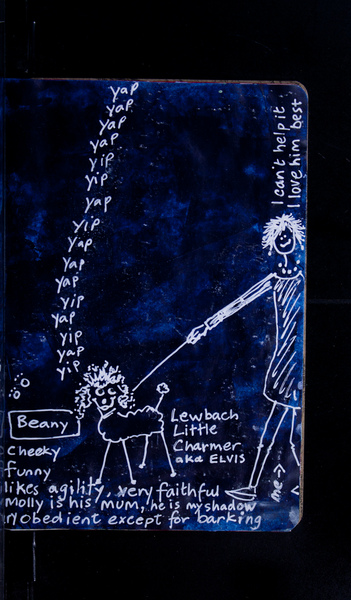 yap
yap
yap
yap
yip
yip
yap
yip
yap
yap
yap
yip
yap
yip
yap
yip
I can't help it
I love him best
Beany
Cheeky
funny
Lewbach
Little
Charmer
aka ELVIS
likes agility, very faithful
Molly is his mum, he is my shadow
obedient except for barking
me →